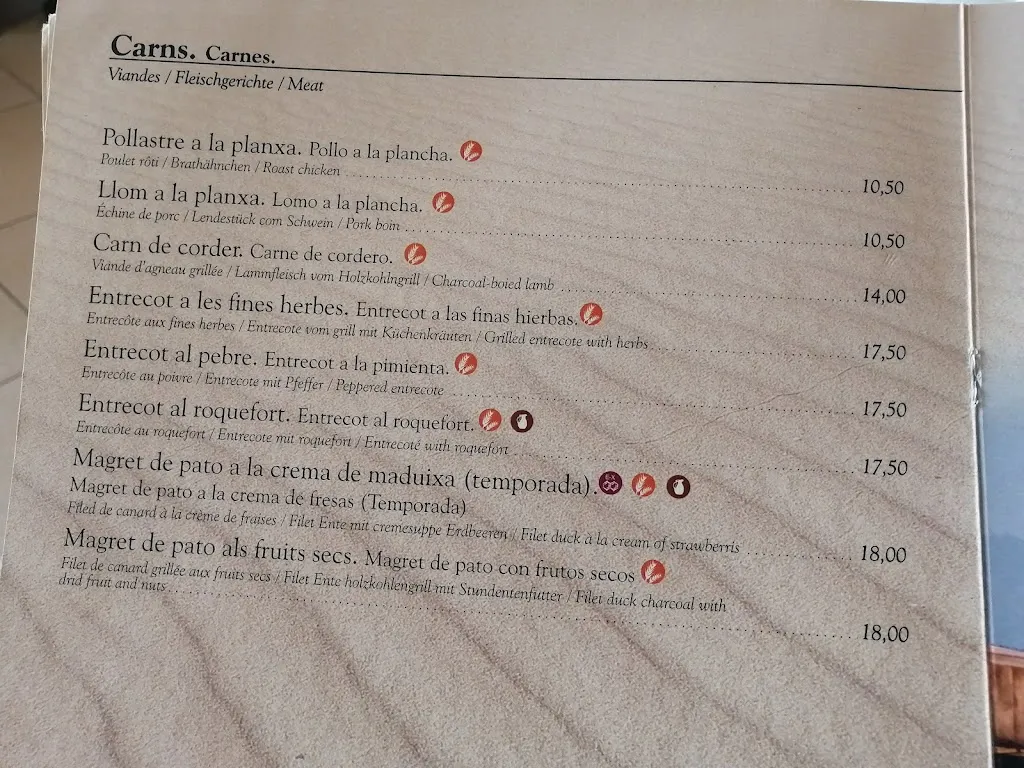 Carns. Carnes.
Viandes / Fleischgerichte / Meat
Pollastre a la planxa. Pollo a la plancha.
Poulet rôti / Brathähnchen / Roast chicken 10,50
Llom a la planxa. Lomo a la plancha.
Échine de porc / Lendestück com Schwein / Pork boin 10,50
Carn de corder. Carne de cordero.
Viande d'agneau grillée / Lammfleisch vom Holzkohlngrill / Charcoal-boied lamb 14,00
Entrecot a les fines herbes. Entrecot a las finas hierbas.
Entrecôte aux fines herbes / Entrecote vom grill mit Küchenkräuten / Grilled entrecote with herbs 17,50
Entrecot al pebre. Entrecot a la pimienta.
Entrecôte au poivre / Entrecote mit Pfeffer / Peppered entrecote 17,50
Entrecot al roquefort. Entrecot al roquefort.
Entrecôte au roquefort / Entrecote mit roquefort / Entrecoté with roquefort 17,50
Magret de pato a la crema de maduixa (temporada).
Magret de pato a la crema de fresas (Temporada)
Filed de canard à la crème de fraises / Filet Ente mit cremesuppe Erdbeeren / Filet duck à la cream of strawberris 18,00
Magret de pato als fruits secs. Magret de pato con frutos secos
Filet de canard grillée aux fruits secs / Filet Ente holzkohlengrill mit Stundentenfutter / Filet duck charcoal with
drid fruit and nuts 18,00